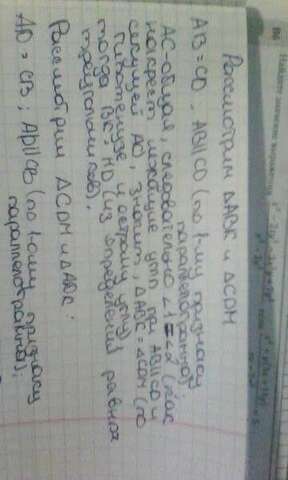 Рассмотрим ΔАВК и ΔCDM
AB = CD, AB||CD (по 1-му признаку
параллелограмма)
АС-общая, следовательно ∠1=∠2 (как
накрест лежащие углы при AB||CD и
секущей AC), значит, ΔABK = ΔCDM (по
гипотенузе и острому углу)
тогда BK = MD (из определения равных
треугольников).
Рассмотрим ΔCDM и ΔABK:
AD = CB; AD||CB (по 1-ому признаку
параллелограмма);
Найдите значение выражения